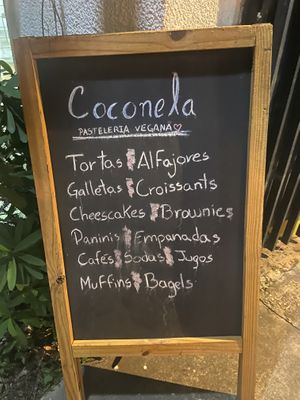 Coconela
PASTELERIA VEGANA
Tortas Alfajores
Galletas Croissants
Cheescakes Brownies
Paninis Empanadas
Cafés Sodas Jugos
Muffins Bagels